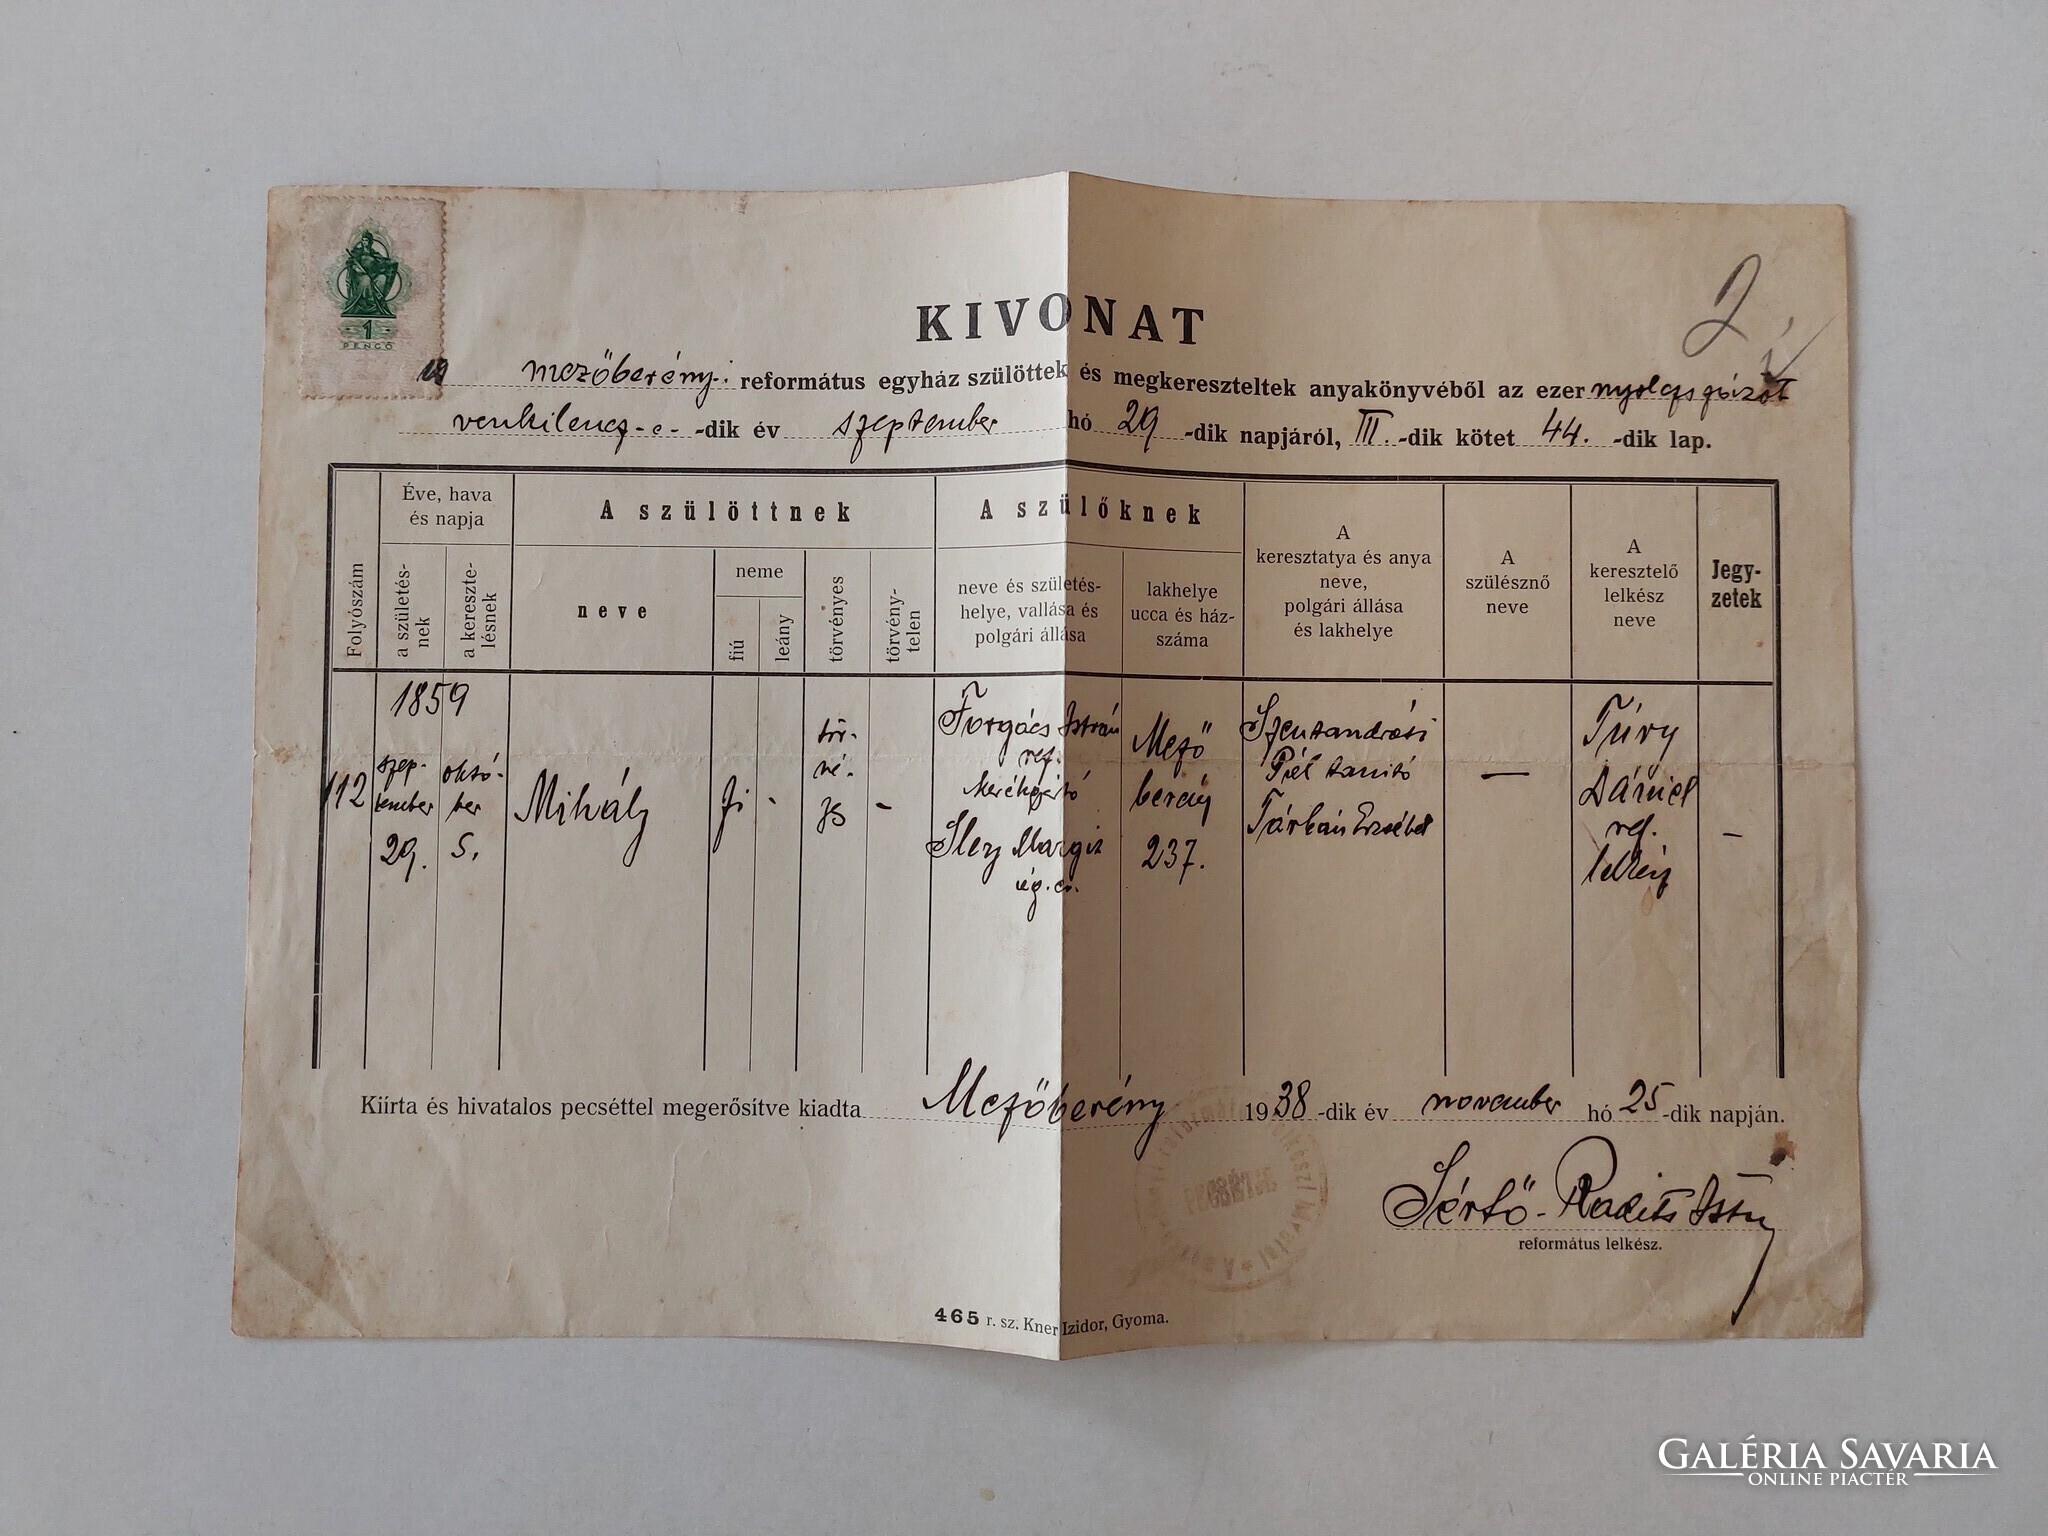 1
PENGŐ
2
KIVONAT
a mezőberényi református egyház szülöttek és megkereszteltek anyakönyvéből az ezer nyolczszázöt
venkilencz-e- -dik év szeptember hó 29 -dik napjáról, III. -dik kötet 44. -dik lap.
Folyószám
Éve, hava
és napja
a születés-
nek
a kereszte-
lésnek
A szülöttnek
neve
neme
fiú
leány
törvényes
törvény-
telen
A szülőknek
neve és születés-
helye, vallása és
polgári állása
lakhelye
ucca és ház-
száma
A
keresztatya és anya
neve,
polgári állása
és lakhelye
A
szülésznő
neve
A
keresztelő
lelkész
neve
Jegy-
zetek
112
1859
szep-
tember
29.
októ-
ber
5.
Mihály
fi
-
tör-
vé-
-
Forgács István
ref.
Margit
Mező
berény
237.
Szentandrási
Pál tanító
Erzsébet
—
Túry
Dániel
ref.
lelkész
–
Kiírta és hivatalos pecséttel megerősítve kiadta Mezőberény 1938 -dik év november hó 25 -dik napján.
Sértő-Radics István
református lelkész.
465 r. sz. Kner Izidor, Gyoma.
GALÉRIA SAVARIA
ONLINE PIACTÉR